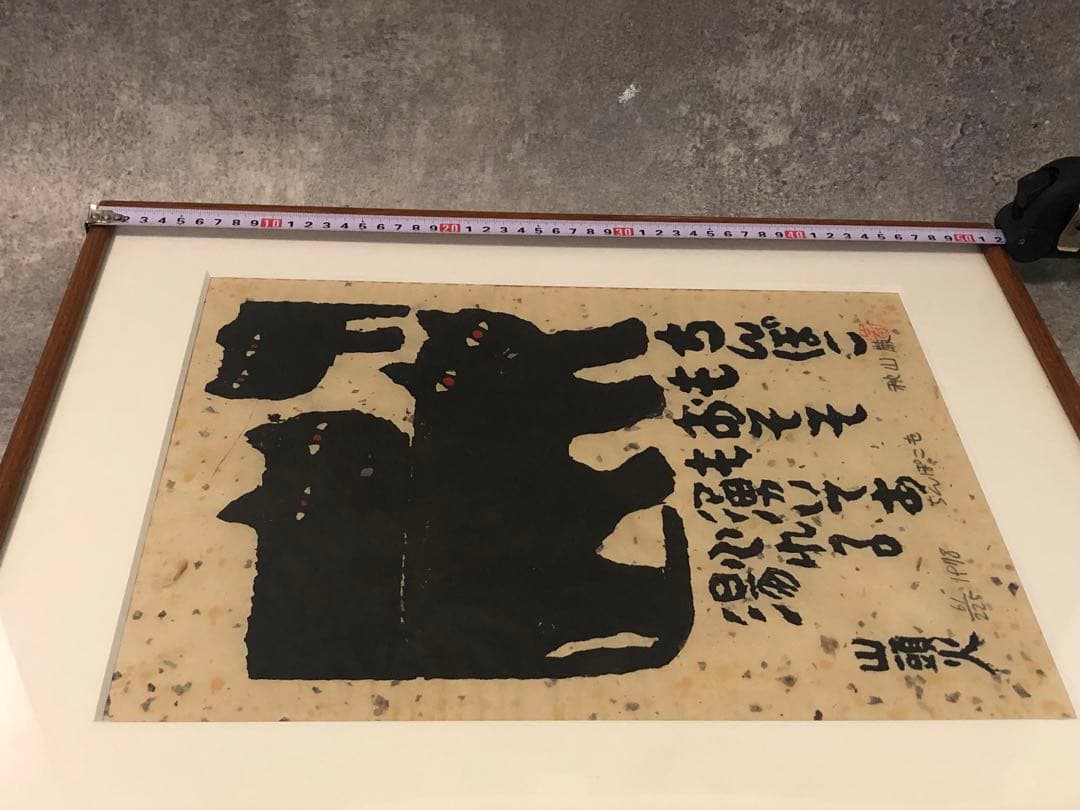 2 3 4 5 6 7 8 9 10 1 2 3 4 5 6 7 8 9 20 1 2 3 4 5 6 7 8 9 30 1 2 3 4 5 6 7 8 9 40 1 2 3 4 5 6 7 8 9 50 1 2
ちんぽこ
もおそそ
も湧いてあ
ふれる
湯
山頭火
秋山巌
ちんぽこも
61/225 1978